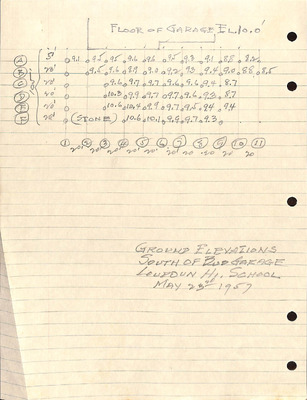 FLOOR OF GARAGE EL 10.0'
A 5' 9.1 9.5 9.5 9.6 9.6 9.5 9.3 9.1 8.8 8.2
B 20' 9.5 9.6 8.9 9.0 9.2 9.3 9.4 9.0 8.8 8.5
C 20' 9.6 9.7 9.7 9.6 9.6 9.4 8.7
D 20' 10.3 9.9 9.7 9.7 9.6 9.3 8.7
E 20' 10.6 10.4 9.9 9.7 9.5 9.4 9.4
F 20' (STONE) 10.6 10.1 9.9 9.7 9.3
1 2 3 4 5 6 7 8 9 10 11
20' 20' 20' 20' 20' 20' 20' 20' 20' 20
GROUND ELEVATIONS
SOUTH OF BUS GARAGE
LOUDOUN HI. SCHOOL
MAY 23RD 1957